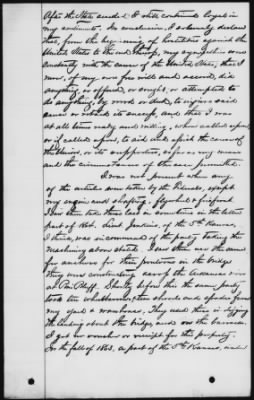 After the State seceded I still continued loyal in
my sentiments. In conclusion, I solemnly declare
that, from the beginning of hostilities against the
United States to the end thereof, my sympathies were
constantly with the cause of the United States; that I
never, of my own free will and accord, did
anything, or offered, or sought, or attempted to
do anything, by word or deed, to injure said
cause or retard its success, and that I was
at all times ready and willing, when called upon,
or if called upon, to aid and assist the cause of
the Union, or its supporters, so far as my means
and the circumstances of the case permitted.
I was not present when any
of the articles were taken by the Federals, except
my engine and shafting, flywheel &
I saw them take these last in the latter
part of 1864. Lieut. of the 5th Kansas,
I think, was in command of the party taking the
machinery above stated. I saw them use the same
for anchors for their pontoons in the bridge
they were constructing across the Arkansas river
at Pine Bluff. Shortly before this the same party
took ten wheelbarrows, ten shovels and spades from
my yard & warehouse. They used these in digging
the landing about the bridge, and on the
I got no voucher or receipt for this property.
In the fall of 1863, a part of the 5th Kansas, under